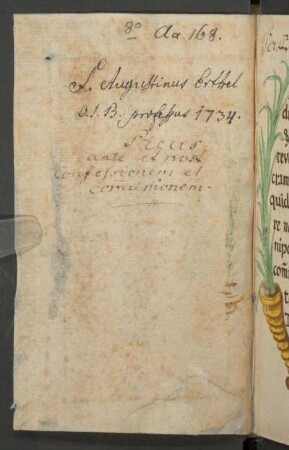 8º da. 168.
F. Augustinus Erthel
O.S.B. professus 1734.
Preces
ante et post
Confessionem et
Communionem.
da
teve
cram
quid
re n
nipo